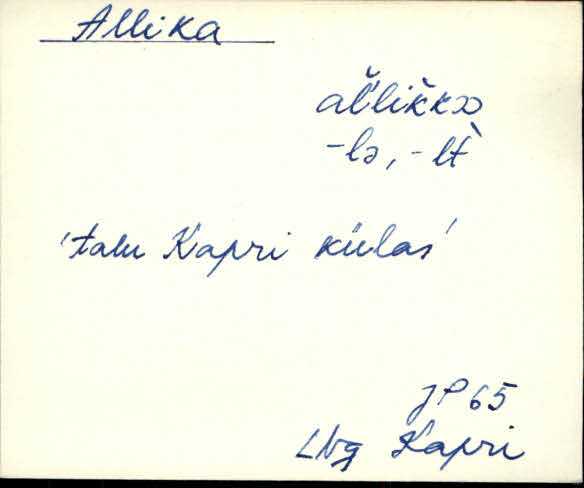 Allika
al̆likkɒ
-lə, -lt̀
'talu Kapri külas'
JP 65
Lug Kapri